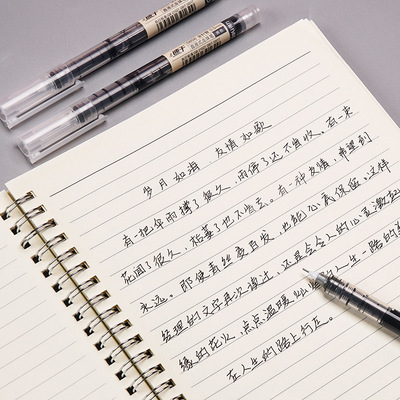 岁月如海 友情如歌
有一把伞雨撑了很久，雨停了还不肯收。有一束
花闻了很久，枯萎了也不肯丢。有一种友情，希望到
永远。即使青丝变白发，也能心底保留。这样
经理的文字再次读过，还是会令人的心里激起
缘的花火，点点温暖 人生一路的
在人生的路上行走。